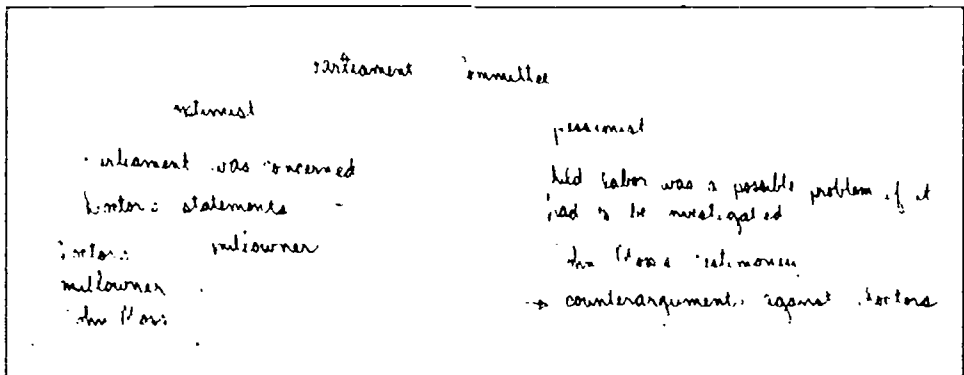 Parliament Committee
optimist
Parliament was concerned
Doctor's statements -
millowner
Doctors
millowner
John Moss
pessimist
Child Labor was a possible problem if it
had to be investigated
John Moss's testimonies
→ counterarguments against doctors